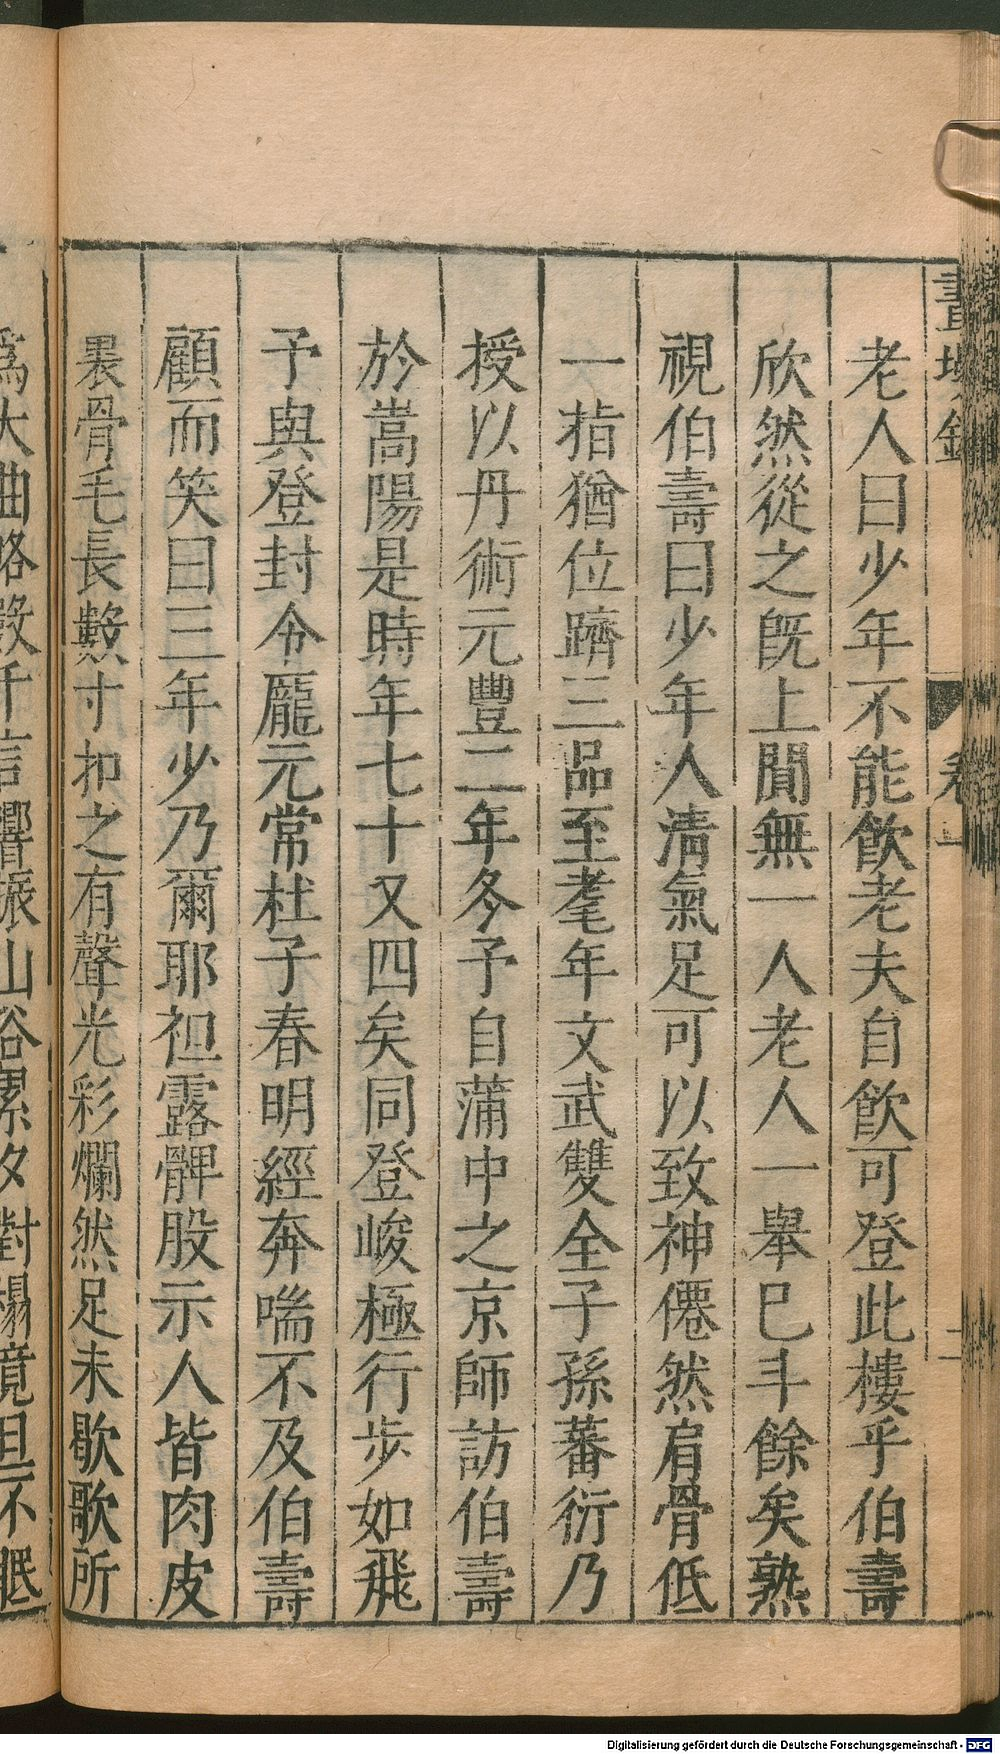 老人曰少年不能飲老夫自飲可登此樓乎伯壽
欣然從之既上閴無一人老人一舉巳斗餘矣熟
視伯壽曰少年人清氣足可以致神僊然肩骨低
一指猶位躋三品至耄年文武雙全子孫蕃衍乃
授以丹術元豐二年冬予自蒲中之京師訪伯壽
於嵩陽是時年七十又四矣同登峻極行步如飛
予與登封令龎元常杜子春明經奔喘不及伯壽
顧而笑曰三年少乃爾耶袒露髀股示人皆肉皮
褁骨毛長數寸扣之有聲光彩爛然足未歇歌所
爲大曲略數千言響振山谷累夕對榻竟旦不
Digitalisierung gefördert durch die Deutsche Forschungsgemeinschaft - DFG